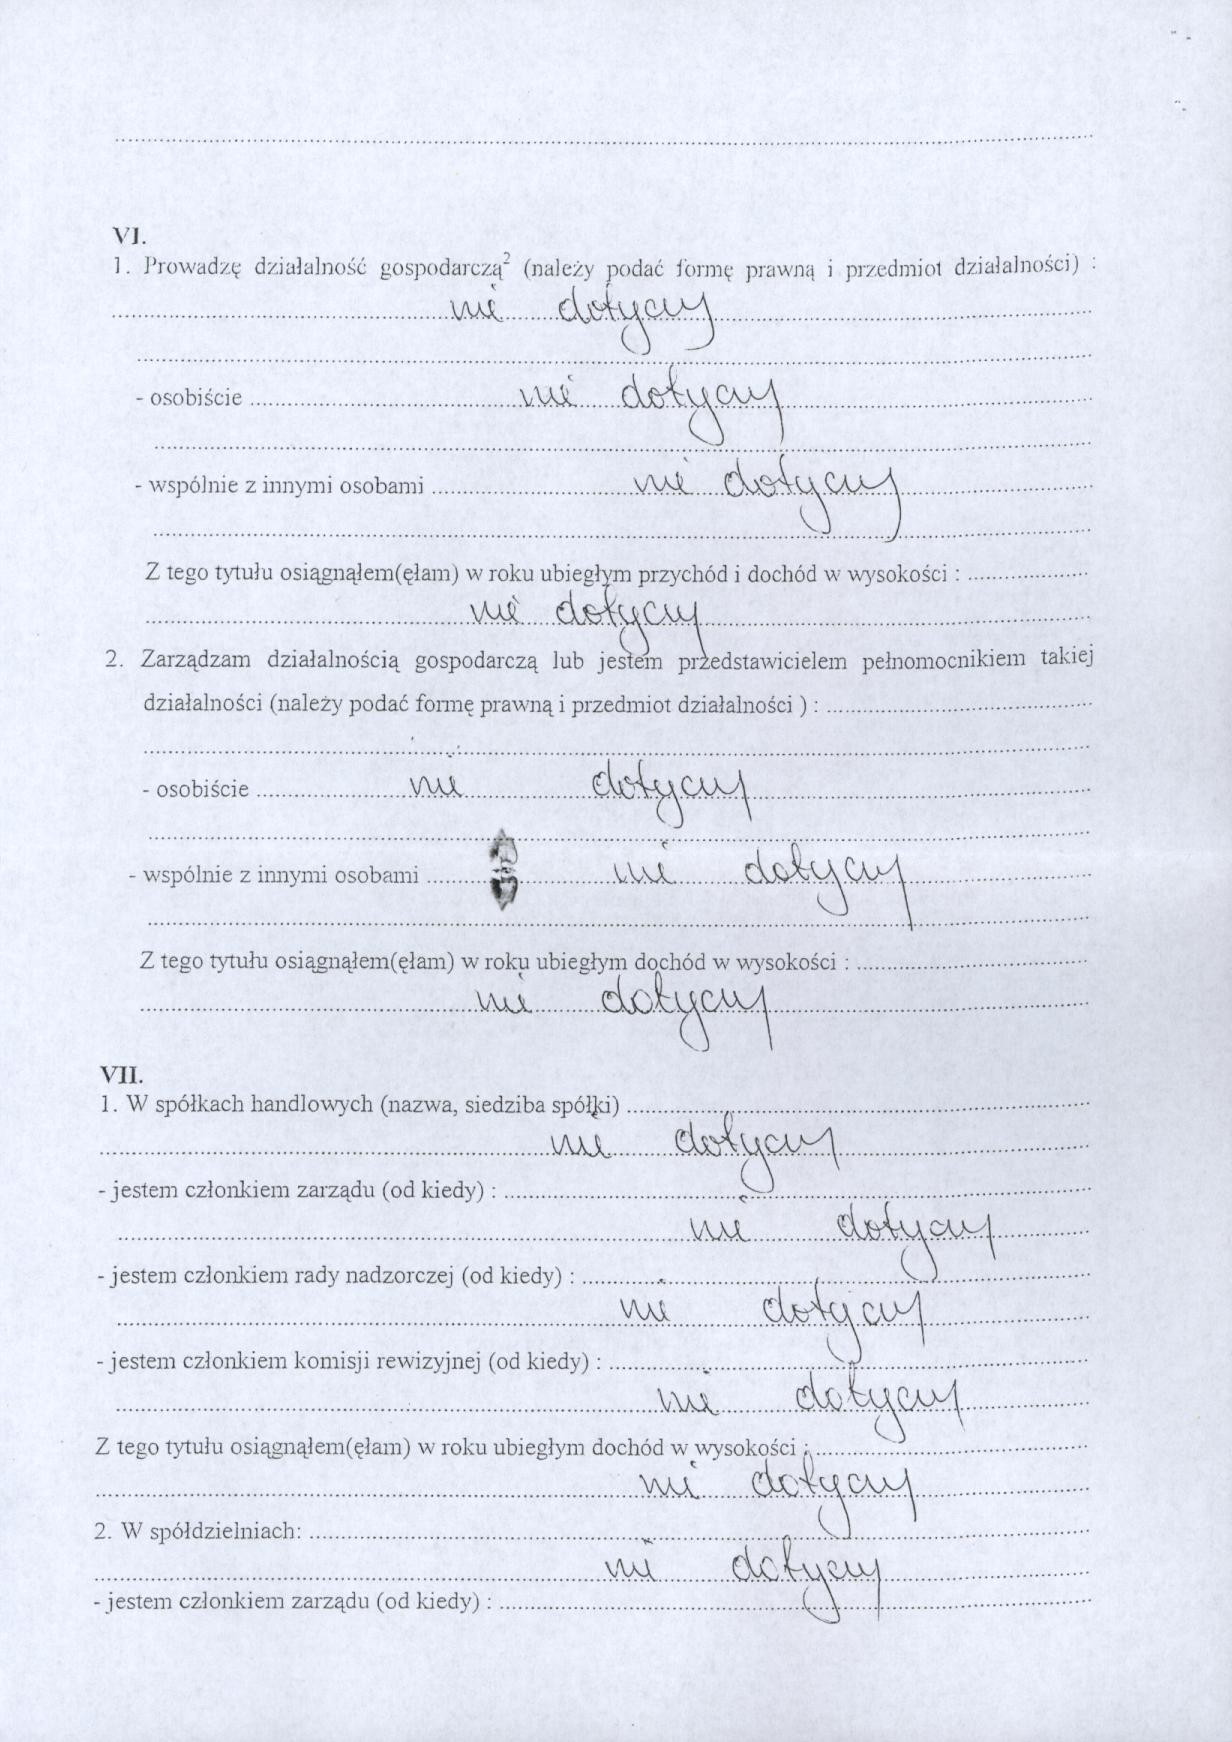 VI.
1. Prowadzę działalność gospodarczą² (należy podać formę prawną i przedmiot działalności) :
nie dotyczy
- osobiście nie dotyczy
- wspólnie z innymi osobami nie dotyczy
Z tego tytułu osiągnąłem(ęłam) w roku ubiegłym przychód i dochód w wysokości :
nie dotyczy
2. Zarządzam działalnością gospodarczą lub jestem przedstawicielem pełnomocnikiem takiej
działalności (należy podać formę prawną i przedmiot działalności ) :
- osobiście nie dotyczy
- wspólnie z innymi osobami nie dotyczy
Z tego tytułu osiągnąłem(ęłam) w roku ubiegłym dochód w wysokości :
nie dotyczy
VII.
1. W spółkach handlowych (nazwa, siedziba spółki)
nie dotyczy
- jestem członkiem zarządu (od kiedy) :
nie dotyczy
- jestem członkiem rady nadzorczej (od kiedy) :
nie dotyczy
- jestem członkiem komisji rewizyjnej (od kiedy) :
nie dotyczy
Z tego tytułu osiągnąłem(ęłam) w roku ubiegłym dochód w wysokości :
nie dotyczy
2. W spółdzielniach:
nie dotyczy
- jestem członkiem zarządu (od kiedy) :